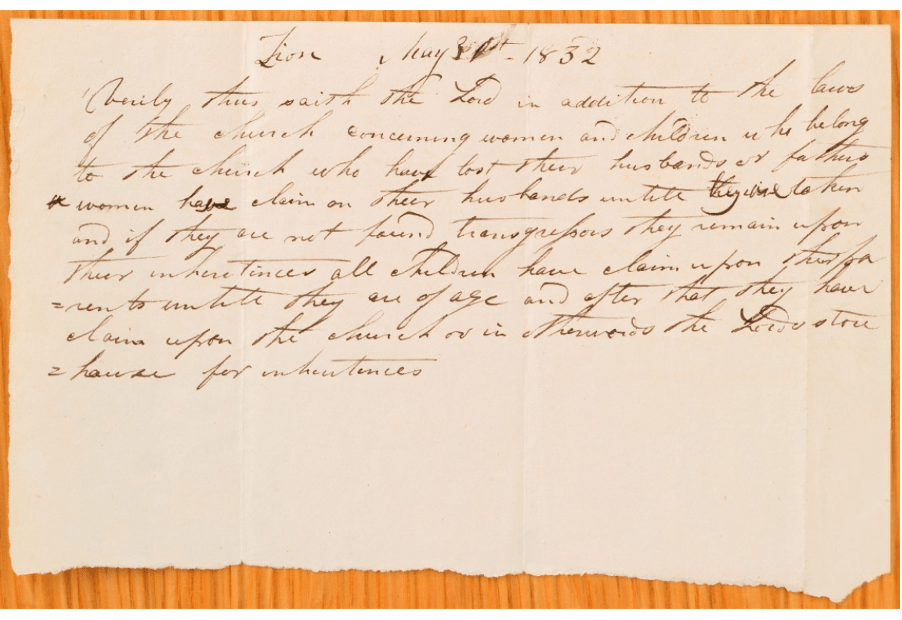 Zion May 31st - 1832
Verily thus saith the Lord in addition to the laws
of the church concerning women and children who belong
to the church who have lost their husbands or fathers
* women have claim on their husbands untill they are taken
and if they are not found transgressors they remain upon
their inheritinces all children have claim upon their pa
=rents untill they are of age and after that they have
claim upon the church or in otherwords the Lords store
=house for inheritences